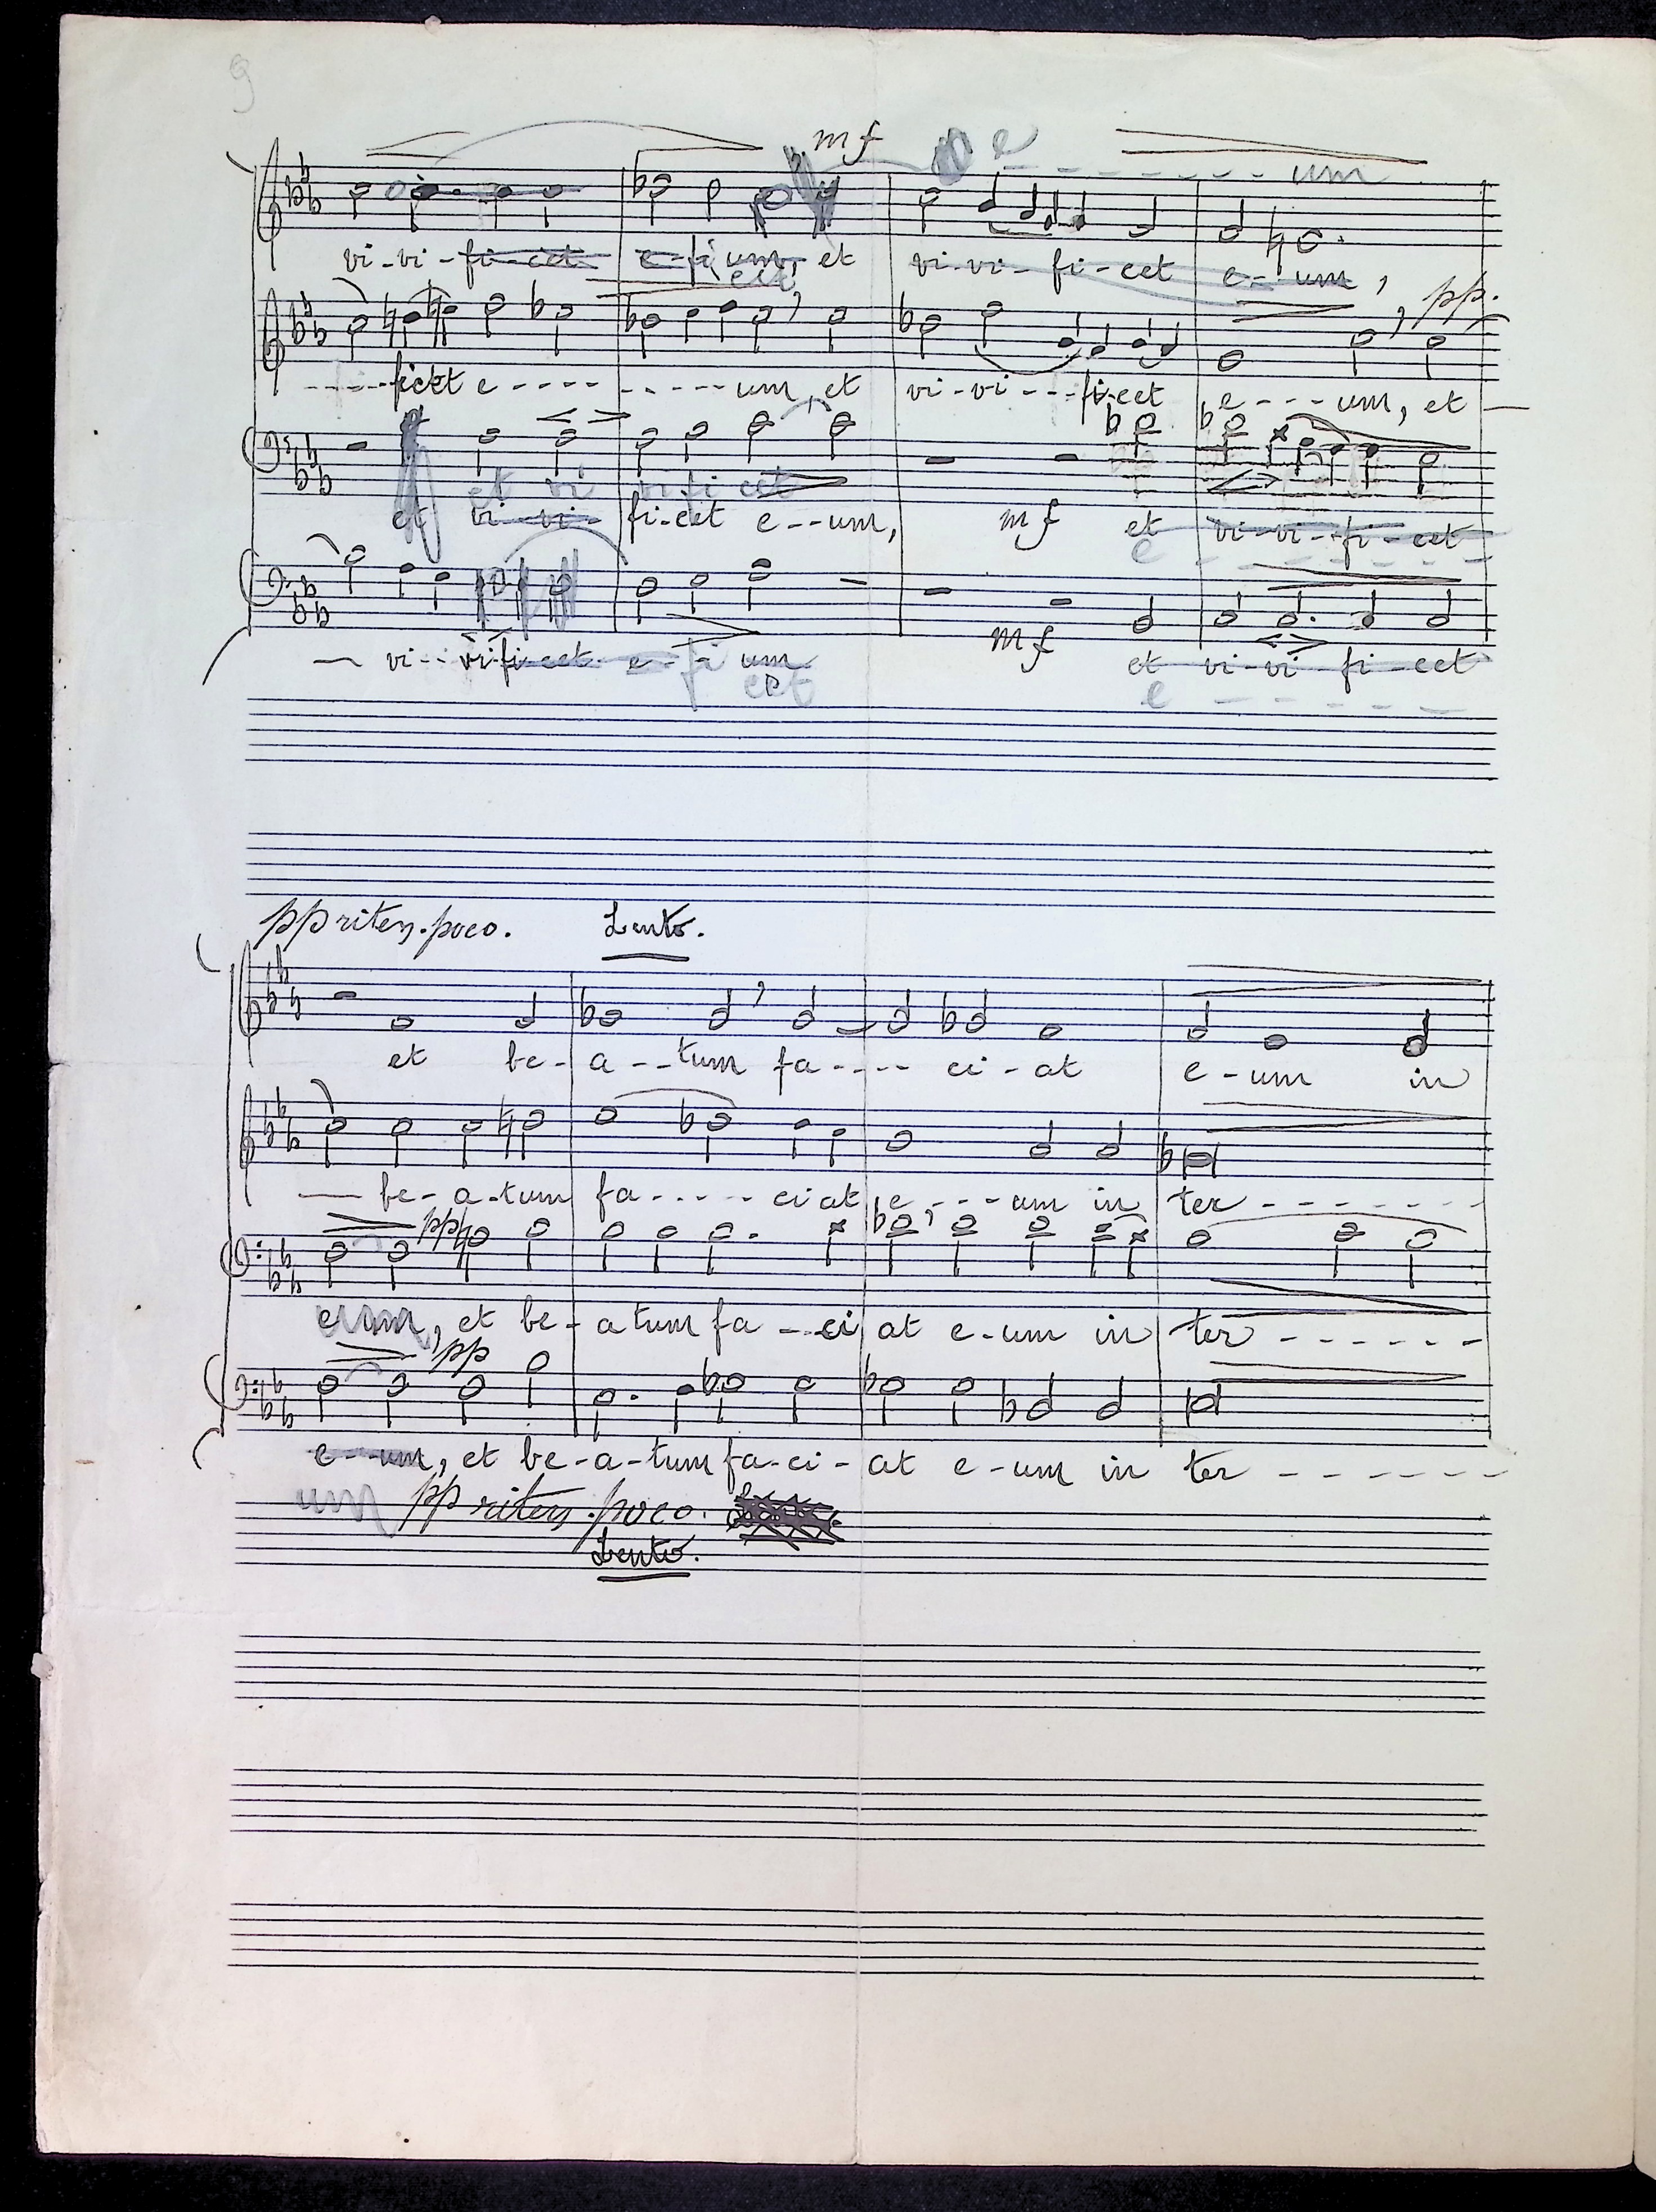 9
mf
e - - - - - - - - um
vi-vi-fi-cet e-fi um, et vi-vi-fi-cet e-um,
cet
pp.
- - - - ficet e - - - - - - - - - um, et vi-vi---fi-cet e---um, et —
et vi vi fi cet
et vi-vi-fi-cet e--um, mf et vi-vi-fi-cet
e - - - - - -
mf
— vi-- vifi-cet e-fi um et vi-vi-fi-cet
cet e - - - - -
pp riten. poco. Lento.
et be-a--tum fa---- ci-at e-um in
— be-a-tum fa----- ciat e---um in ter - - - - - - -
pp
e um, et be-a tum fa--ci at e-um in ter - - - - - -
pp
e--um, et be-a-tum fa-ci-at e-um in ter - - - - - -
um pp riten. poco.
Lento.